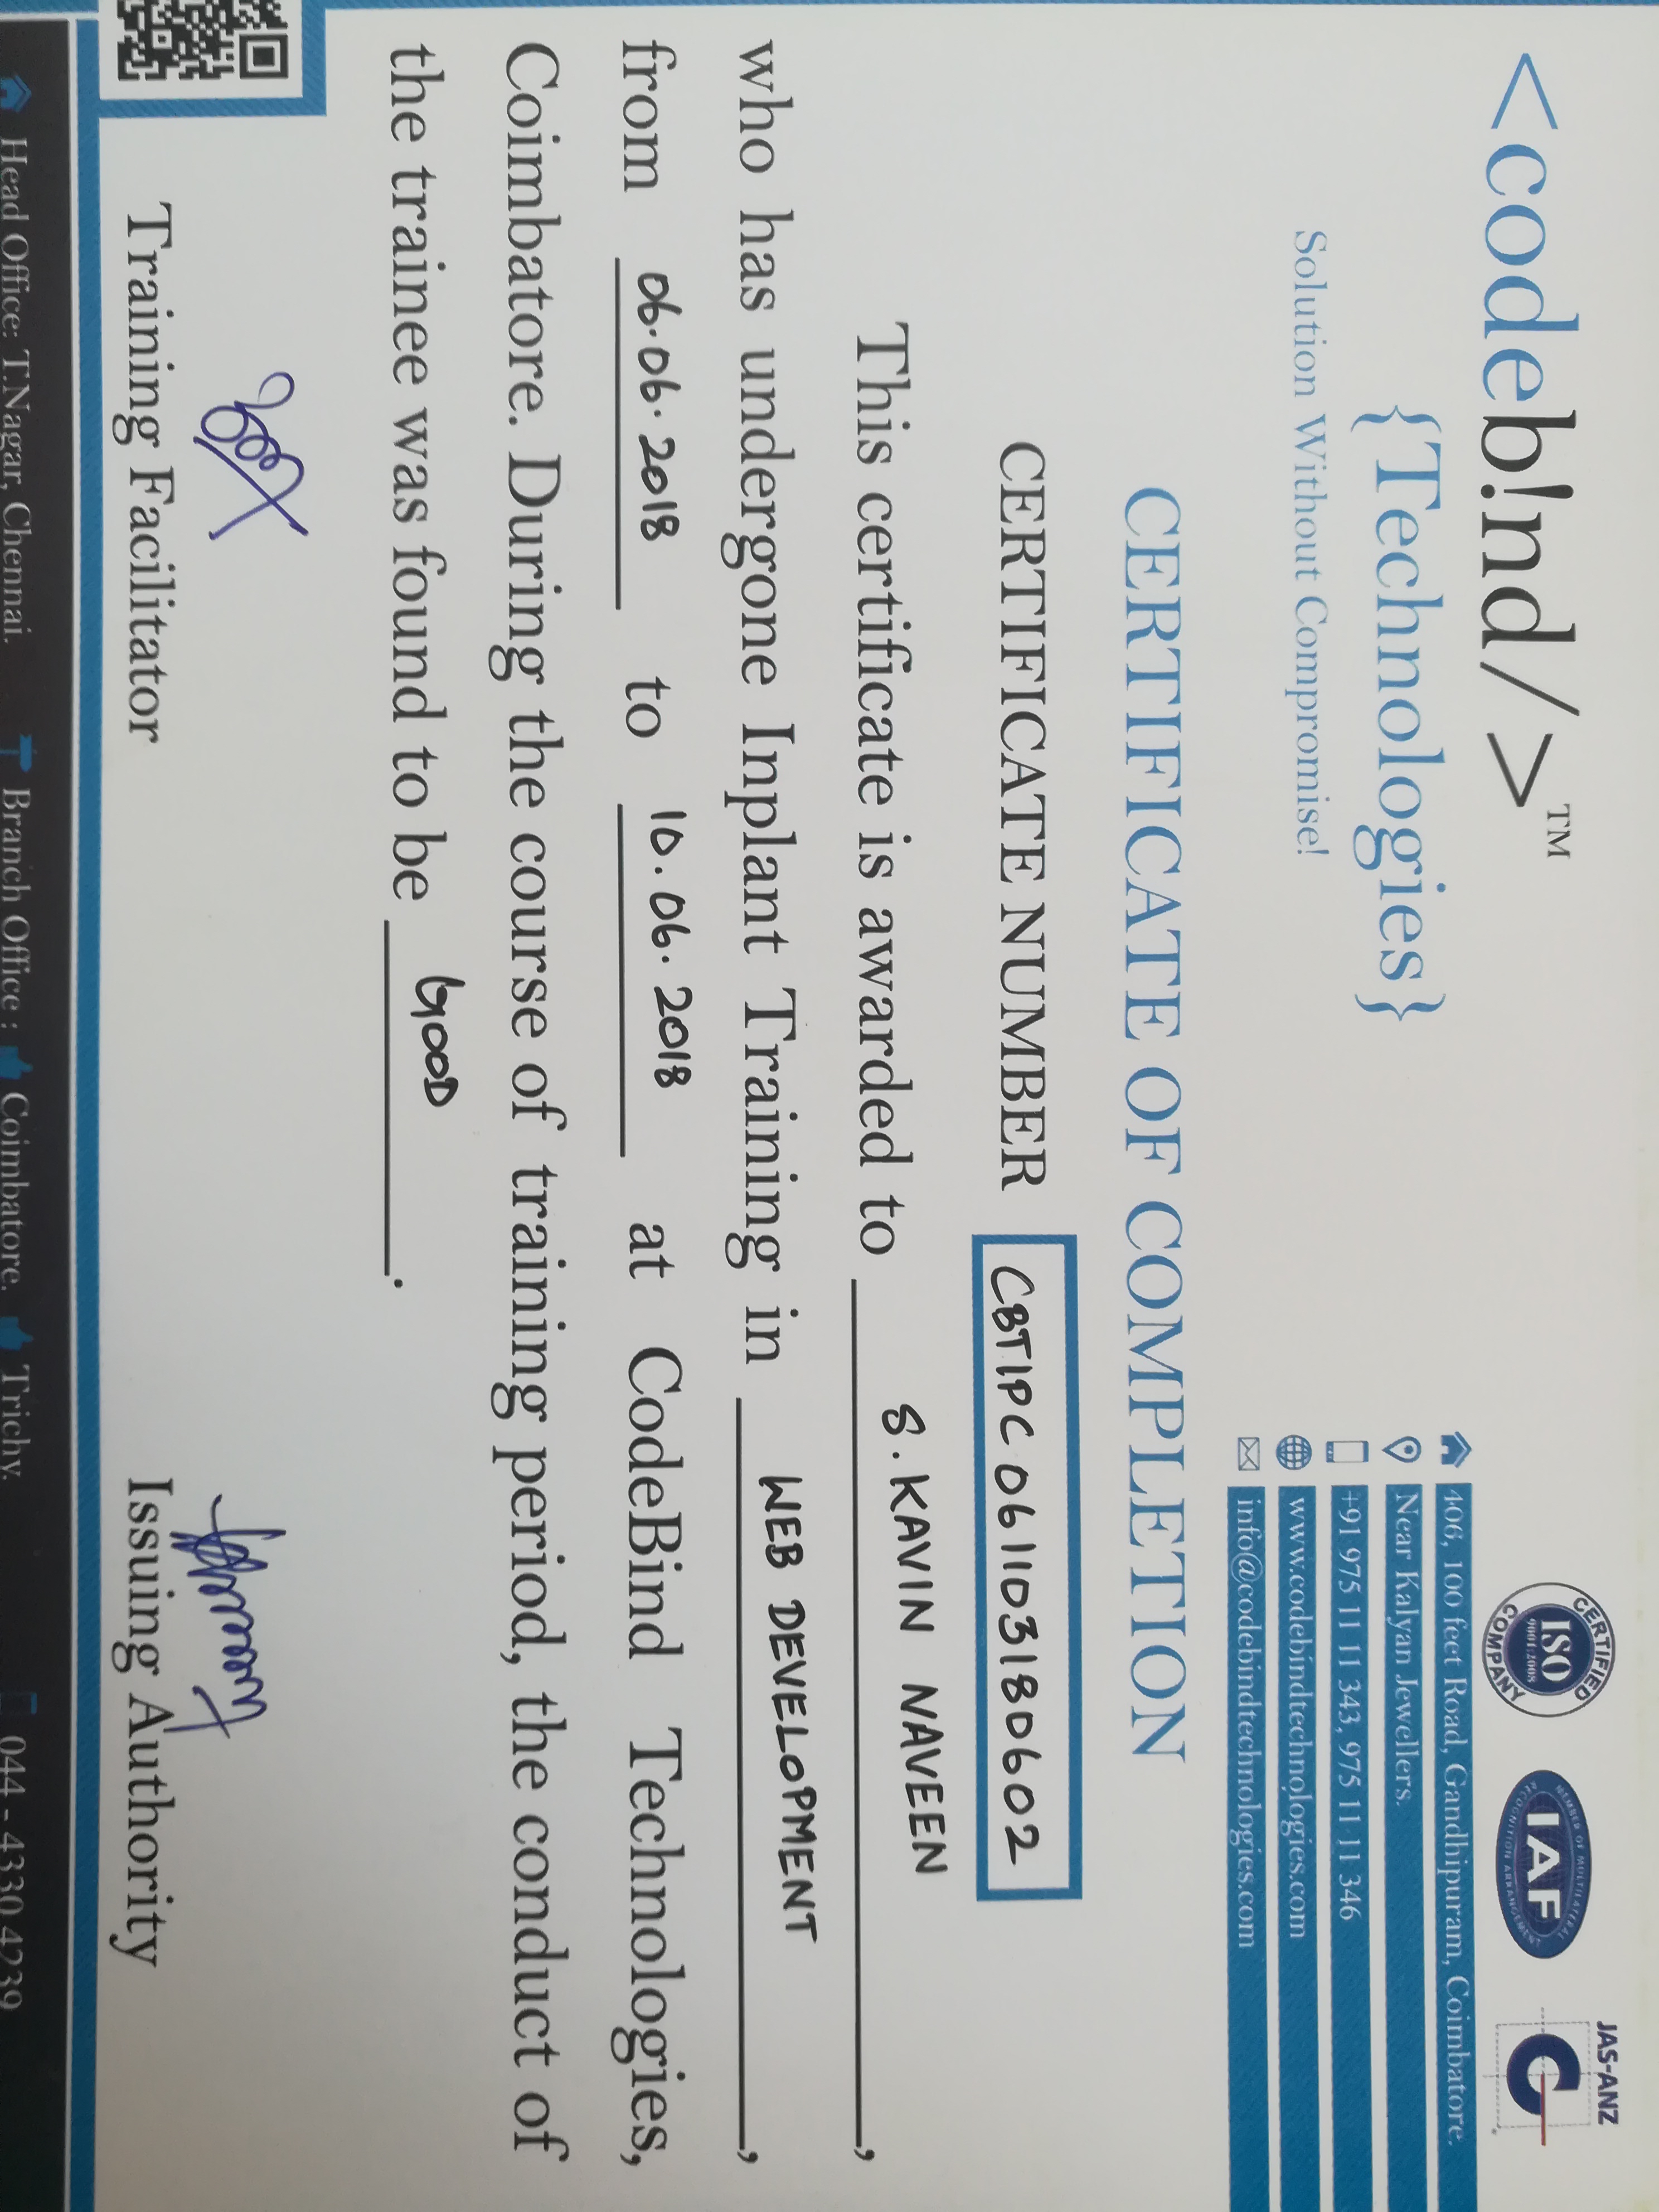 <codeb!nd/>™
{Technologies}
Solution Without Compromise!
CERTIFIED
ISO
9001:2008
COMPANY
MEMBER OF MULTILATERAL
IAF
RECOGNITION ARRANGEMENT
JAS-ANZ
406, 100 feet Road, Gandhipuram, Coimbatore.
Near Kalyan Jewellers.
+91 975 11 11 343, 975 11 11 346
www.codebindtechnologies.com
info@codebindtechnologies.com
CERTIFICATE OF COMPLETION
CERTIFICATE NUMBER CBTIPC 061103180602
This certificate is awarded to S. KAVIN NAVEEN,
who has undergone Inplant Training in WEB DEVELOPMENT,
from 06.06.2018 to 10.06.2018 at CodeBind Technologies,
Coimbatore. During the course of training period, the conduct of
the trainee was found to be GOOD.
Training Facilitator
Issuing Authority
Head Office: T.Nagar, Chennai. Branch Office : Coimbatore. Trichy. 044 - 4330 4239